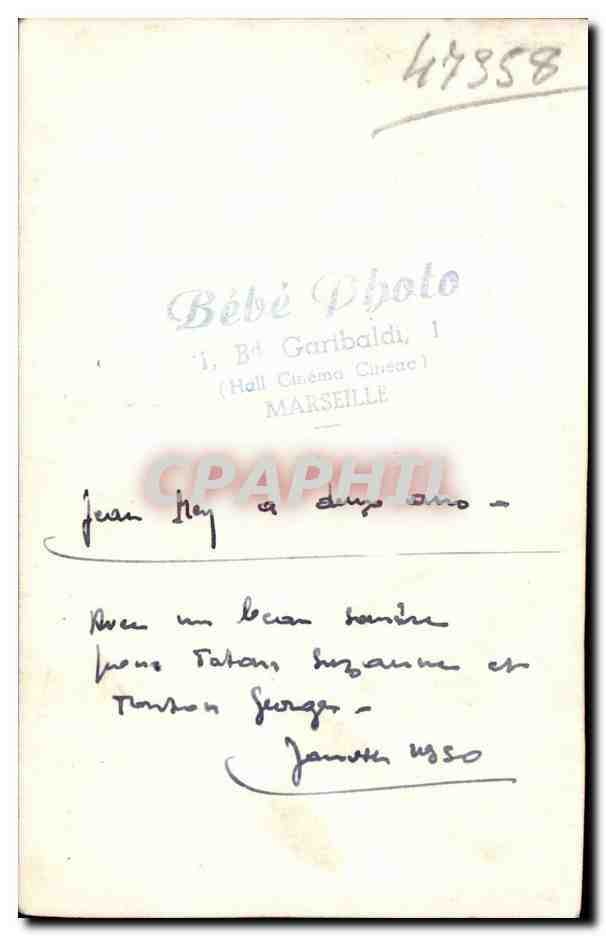 47358
Bébé Photo
1, Bd Garibaldi, 1
(Hall Cinéma Cinéac)
MARSEILLE
CPAPHIL
Jean Rey a deux ans -
Avec un beau sourire
pour Tatan Suzanne et
Tonton Georges -
Janvier 1950